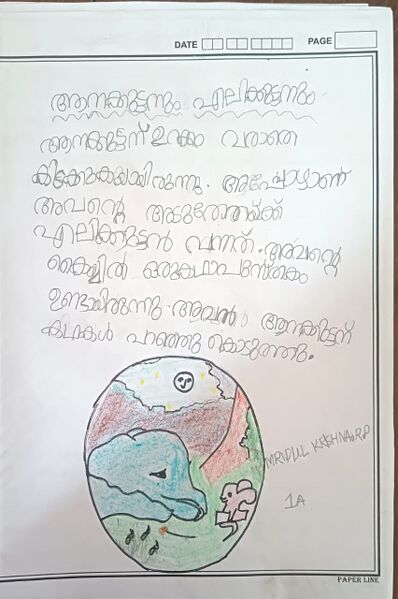 DATE
PAGE
ആനക്കുട്ടനും എലിക്കുട്ടനും
ആനക്കുട്ടന് ഉറക്കം വരാതെ
കിടക്കുകയായിരുന്നു. അപ്പോഴാണ്
അവന്റെ അടുത്തേയ്ക്ക്
എലിക്കുട്ടൻ വന്നത്. അവന്റെ
കൈയ്യിൽ ഒരു കഥാപുസ്തകം
ഉണ്ടായിരുന്നു. അവൻ ആനക്കുട്ടന്
കഥകൾ പറഞ്ഞു കൊടുത്തു.
MRIDUL KRISHNA.R.P
1A
PAPER LINE